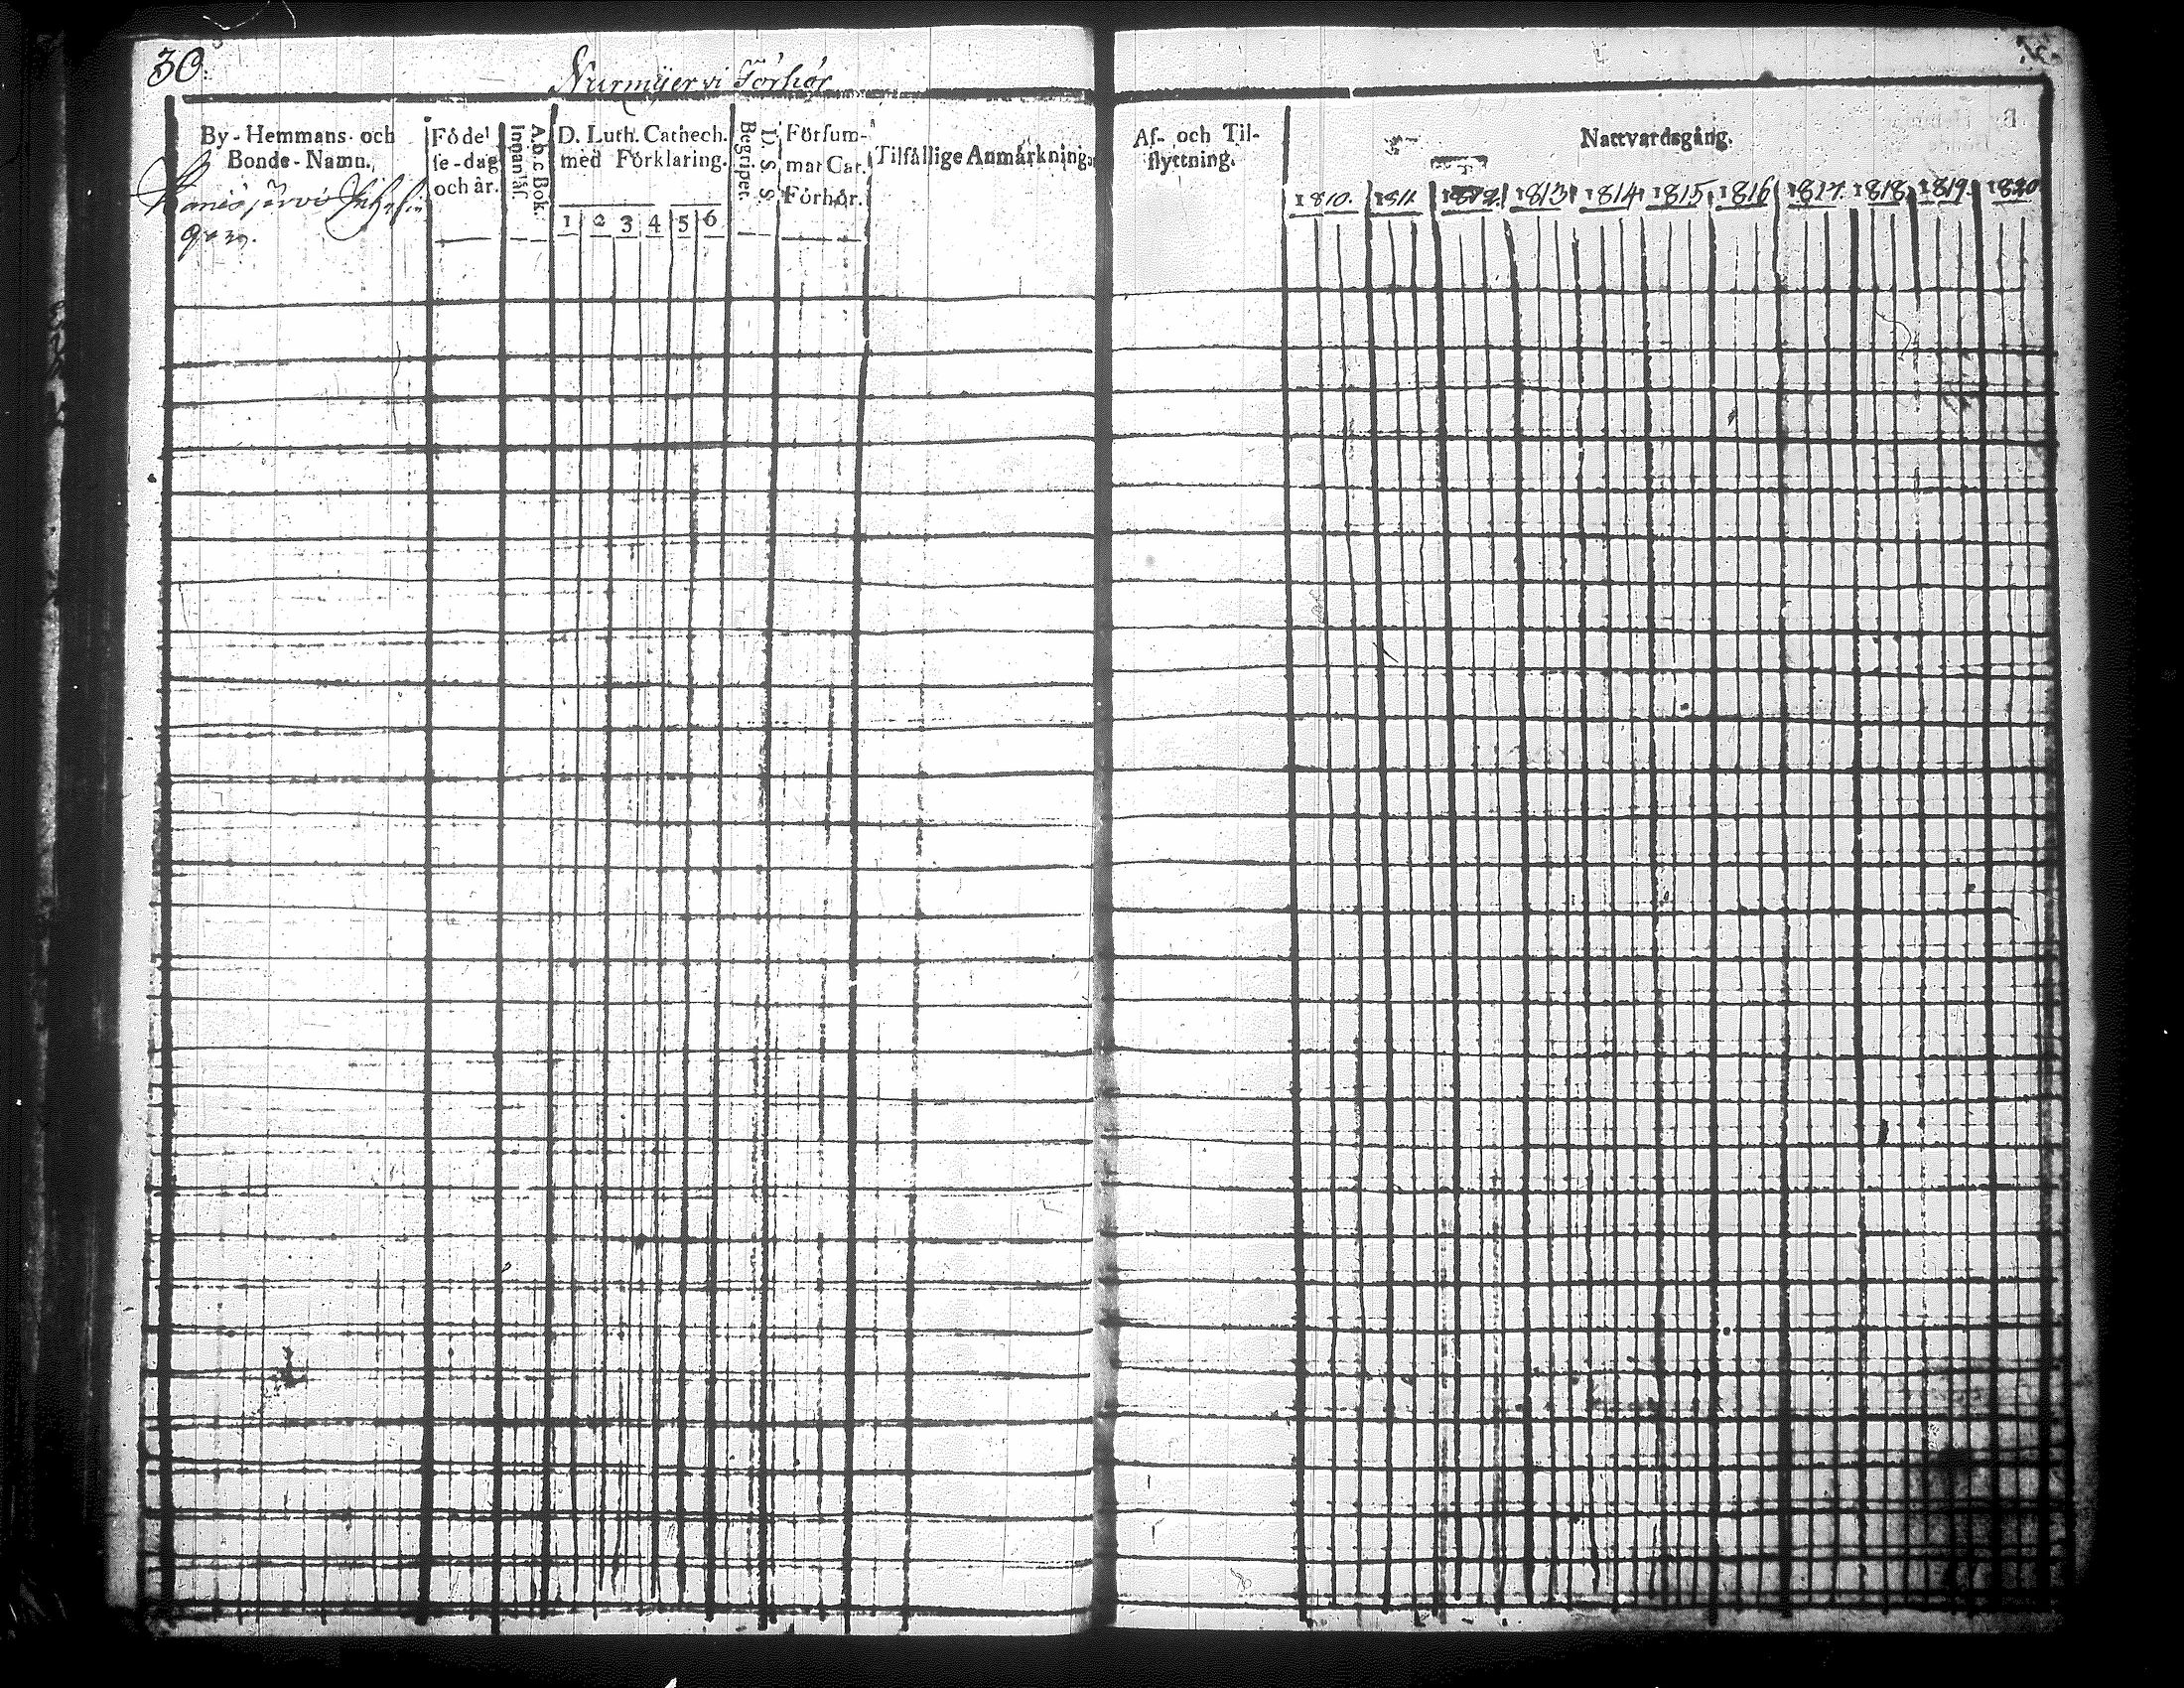 30.
Nurmijervi Förhör
By-Hemmans- och
Bonde-Namn.
Födel
se-dag
och år.
Innanläs.
A.b.c Bok.
D. Luth. Cathech.
med Förklaring.
1 2 3 4 5 6
Begriper.
D. S. S.
Försum-
mat Cat.
Förhör.
Tilfällige Anmärkning.
Af- och Til-
flyttning.
Nattvardsgång.
1810. 1811. 1812. 1813 1814 1815 1816 1817. 1818 1819. 1820